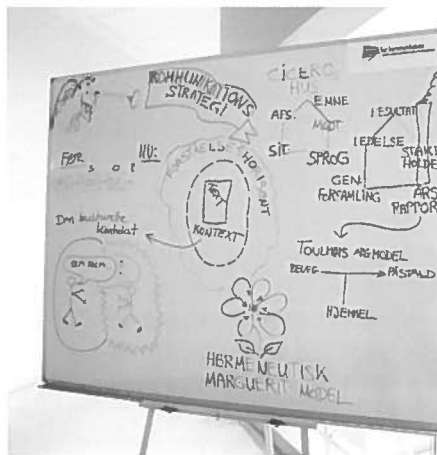 for kommunikation
KOMMUNIKATIONS
STRATEGI
CICEROS
HUS
AFS.
EMNE
MODT
SIT
SPROG
RESULTAT
LEDELSE
STAKE
HOLDE
GEN.
FORSAMLING
ÅRS
RAPPORT
FØR
S O P
NU:
FORSTÅELSESHORISONT
TEXT
KONTEXT
Den
kontekst
TOULMINS ARG MODEL
BEVÆG
PÅSTAND
HJEMMEL
HERMENEUTISK
MARGUERIT MODEL